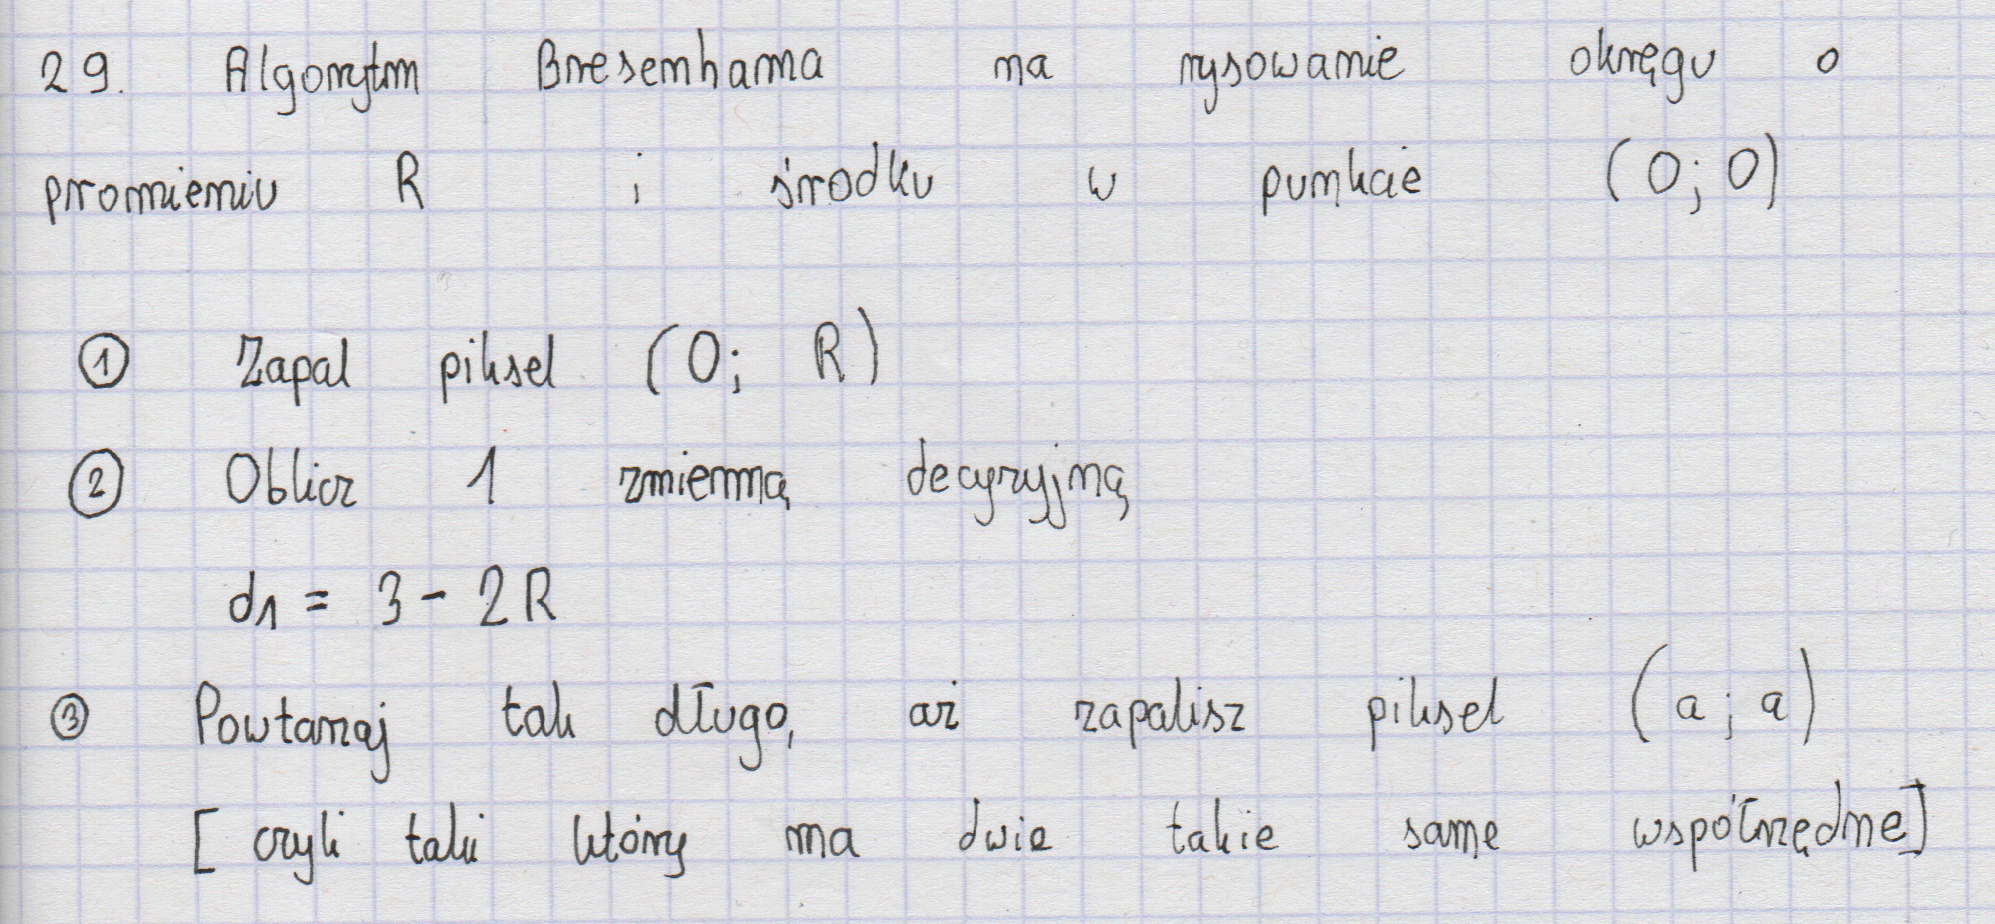 29. Algorytm Bresenhama na rysowanie okręgu o
promieniu R i środku w punkcie (0; 0)
① Zapal piksel (0; R)
② Oblicz 1 zmienną decyzyjną
d1 = 3 - 2R
③ Powtarzaj tak długo, aż zapalisz piksel (a; a)
[czyli taki który ma dwie takie same współrzędne]